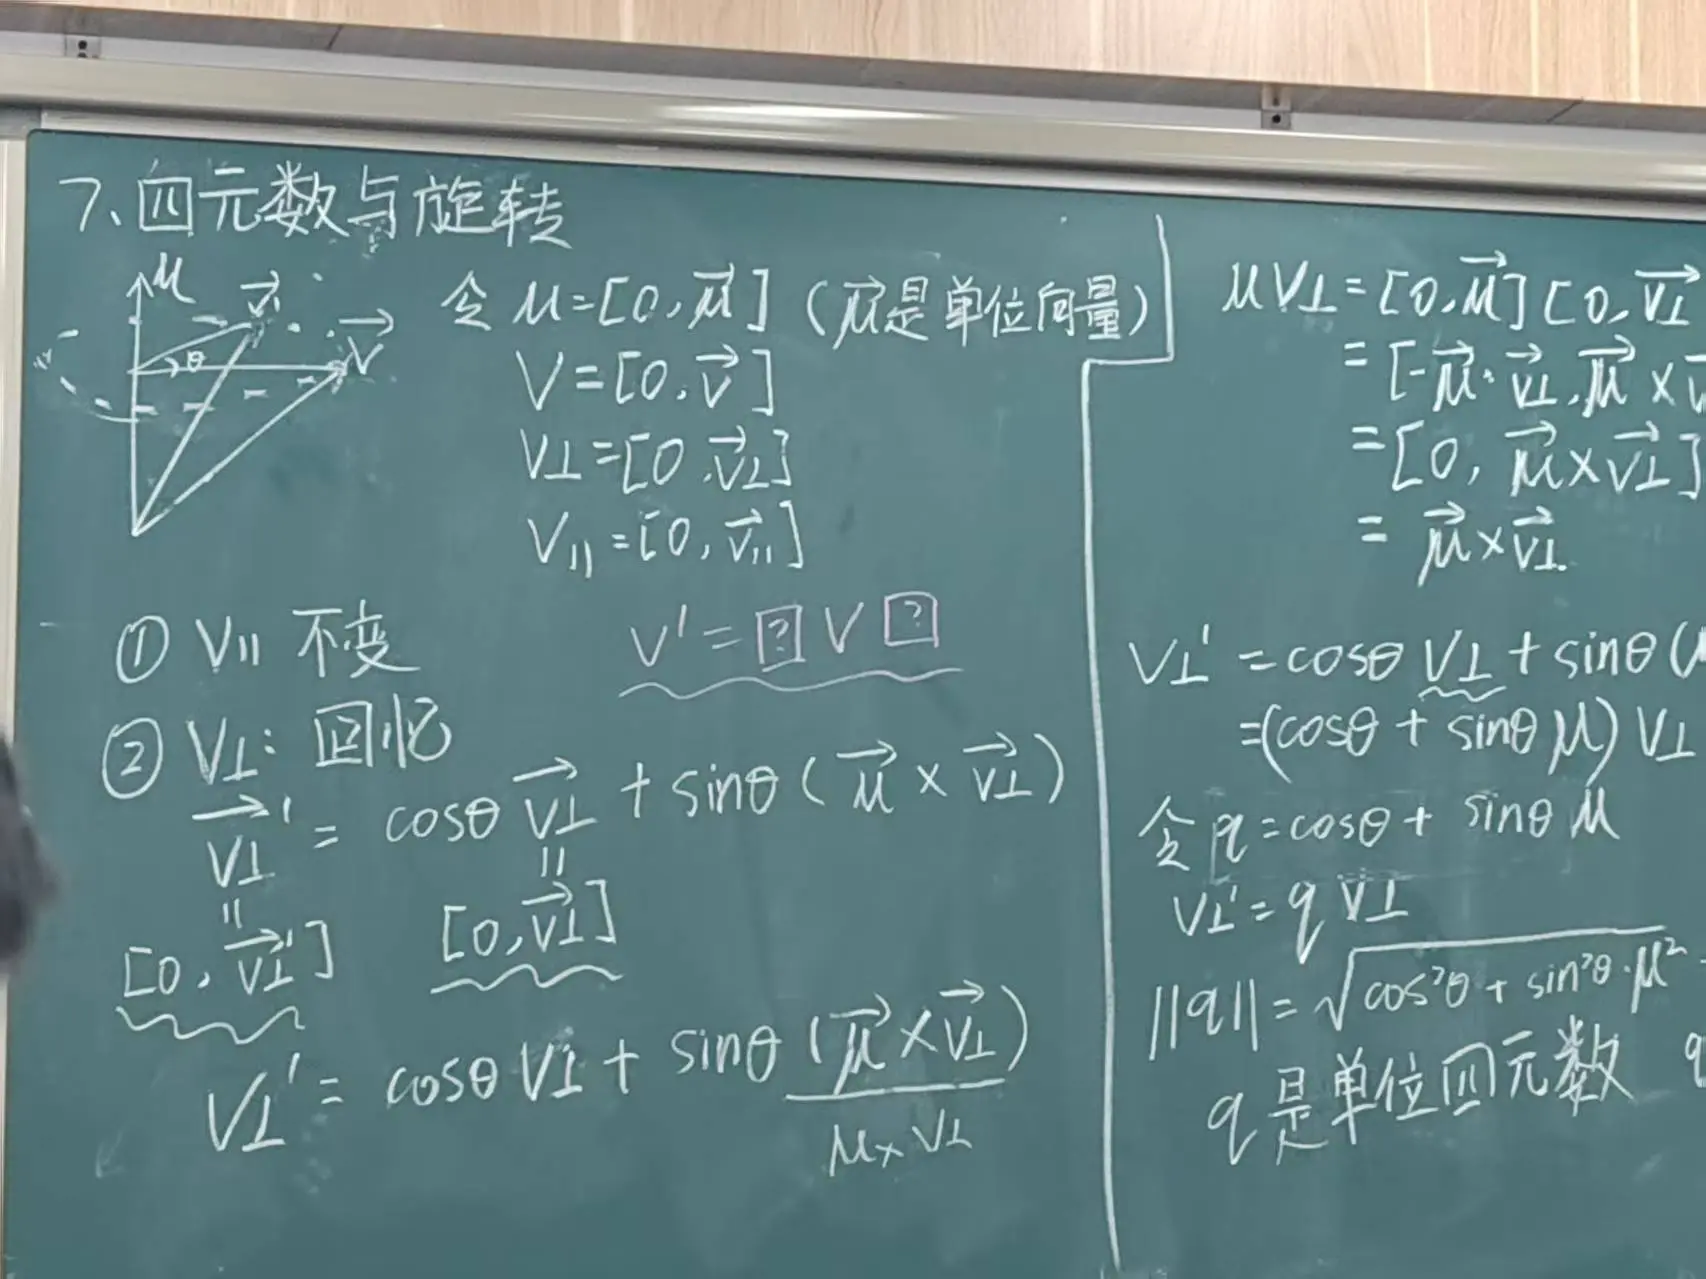 7、四元数与旋转
μ
v⃗'
v⃗
θ
令 μ=[0,μ⃗] (μ⃗是单位向量)
V=[0,v⃗]
V⊥=[0,v⃗⊥]
V∥=[0,v⃗∥]
① V∥ 不变
V'=[?] V [?]
② V⊥: 回忆
v⃗⊥' = cosθ v⃗⊥ + sinθ(μ⃗×v⃗⊥)
[0,v⃗⊥'] [0,v⃗⊥]
V⊥' = cosθ V⊥ + sinθ (μ⃗×v⃗⊥)
μ×V⊥
μV⊥=[0,μ⃗][0,v⃗⊥
=[-μ⃗·v⃗⊥,μ⃗×v⃗
=[0, μ⃗×v⃗⊥]
= μ⃗×v⃗⊥.
V⊥' =cosθ V⊥ + sinθ(μ
=(cosθ + sinθ μ) V⊥
令 q=cosθ+ sinθ μ
V⊥'= q V⊥
||q||=√cos²θ + sin²θ·μ²
q是单位四元数 q